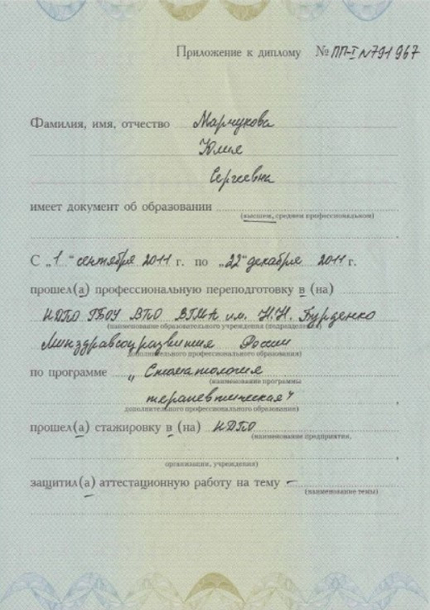 Приложение к диплому № ПП-I N791967
Фамилия, имя, отчество Марчукова
Юлия
Сергеевна
имеет документ об образовании
(высшем, среднем профессиональном)
С „1" сентября 2011 г. по „22" декабря 2011 г.
прошел(а) профессиональную переподготовку в (на)
ИДПО ГБОУ ВПО ВГМА им. Н.Н. Бурденко
(наименование образовательного учреждения (подразделения)
Минздравсоцразвития России
дополнительного профессионального образования)
по программе „Стоматология
(наименование программы
терапевтическая"
дополнительного профессионального образования)
прошел(а) стажировку в (на) ИДПО
(наименование предприятия,
организации, учреждения)
защитил(а) аттестационную работу на тему –
(наименование темы)